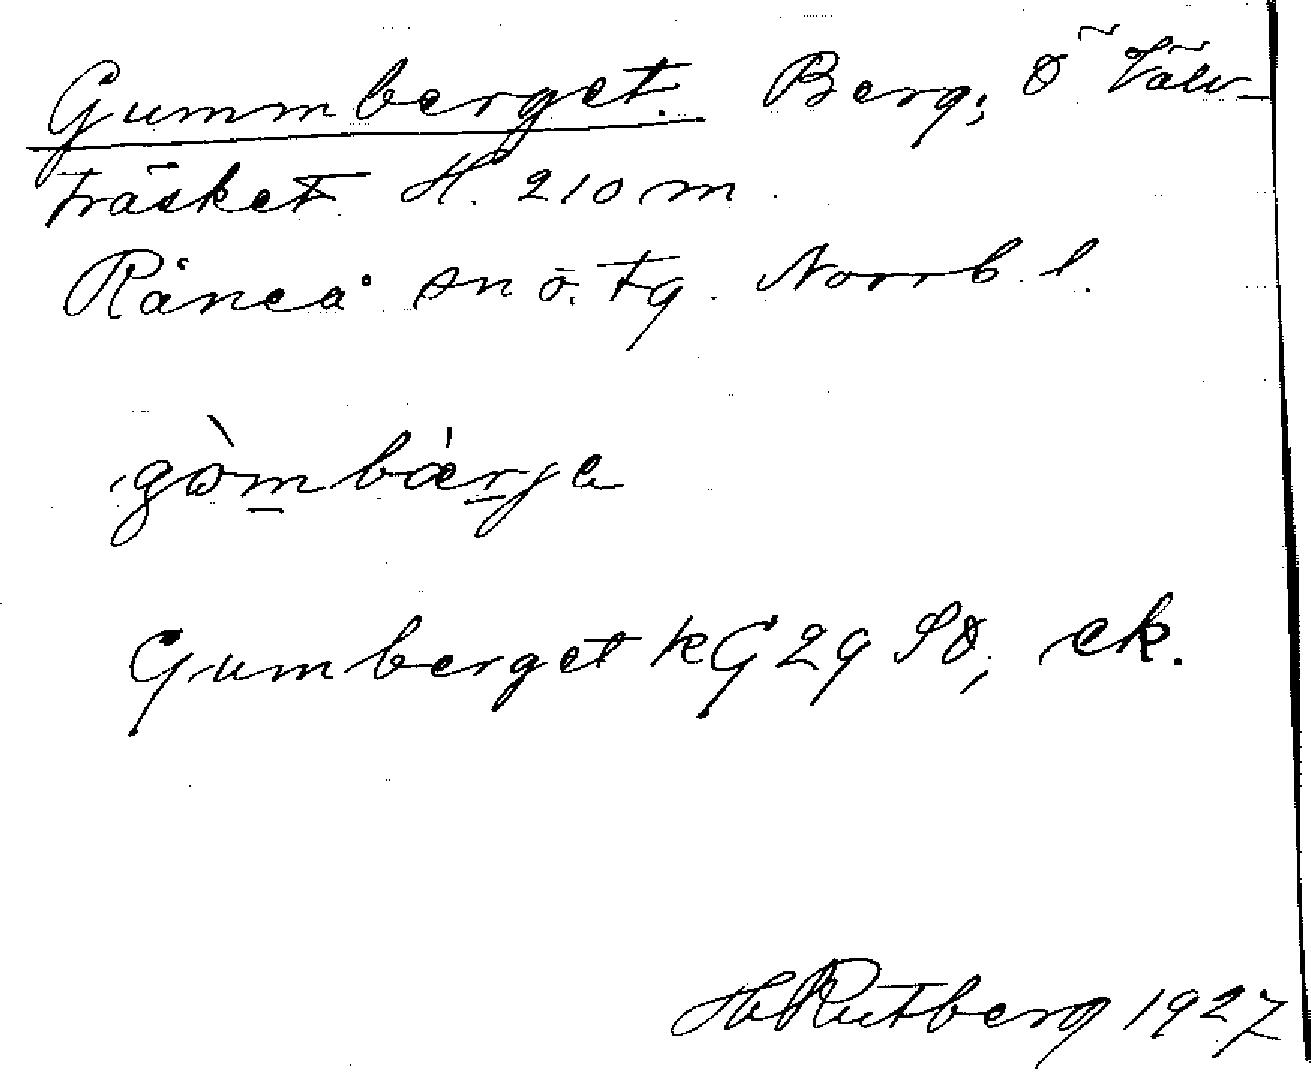 Gummberget. Berg, Ö Väl-
träsket H. 210 m.
Råneå sn ö. tg. Norrb. l.
gòmbǽrje
Gumberget kG 29 SO, ek.
H Rutberg 1927